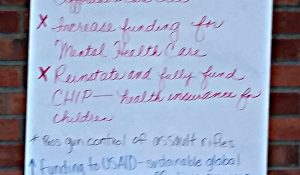 x Increase funding for
Mental Health Care
x Reinstate and fully fund
CHIP — health insurance for
children
* Pass gun control of assault rifles
↑ Funding to USAID - sustainable global